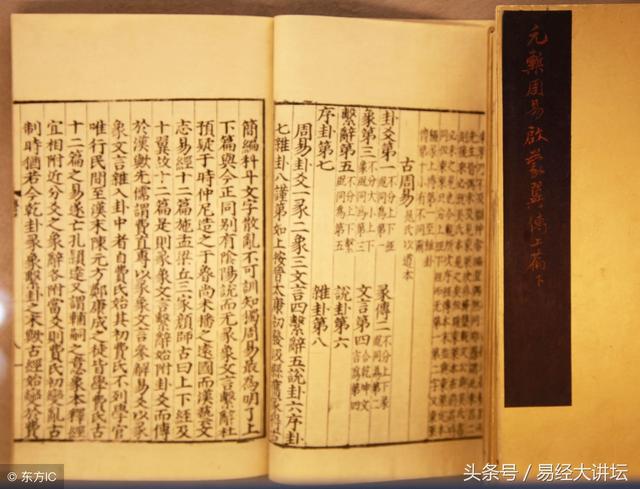 元槧周易啟蒙翼傳上篇下
古周易 晁氏以道本
卦爻第一 不分上下經 呂同為第一 彖傳二 不分上下彖 呂同為第二
象第三 不分大小上下 呂同為第三 文言第四 合乾坤文言為第四
繫辭第五 不分上下繫 呂同為第五 說卦第六
序卦第七 雜卦第八
周易卦爻一彖二象三文言四繫辭五說卦六序卦
七雜卦八謹第如上按晉太康初發汲縣舊冢得古
簡編科斗文字散亂不可訓知獨周易最為明了上
下篇與今正同別有陰陽說而无彖象文言繫辭杜
預疑于時仲尼造之于魯尚未播之遠國而漢藝文
志易經十二篇施孟梁丘三家顏師古曰上下經及
十翼故十二篇是則彖象文言繫辭始附卦爻而傳
於漢歟先儒謂費直專以彖象文言參解易爻以彖
象文言雜入卦中者自費氏始其初費氏不列學官
唯行民間至漢末陳元方鄭康成之徒皆學費氏古
十二篇之易遂亡孔穎達又謂輔嗣之意象本釋經
宜相附近分爻之象辭各附當爻則費氏初變亂古
制時猶若今乾卦彖象繫卦之末歟古經始變於費
© 东方IC
头条号 / 易经大讲坛